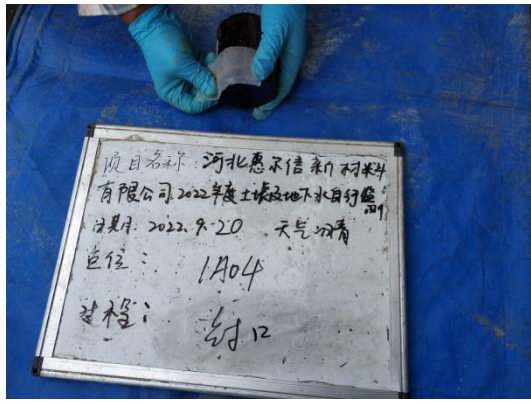 项目名称:河北惠尔信新材料
有限公司2022年度土壤及地下水自行监测
日期:2022.9.20 天气:晴
点位:1A04
过程:封口